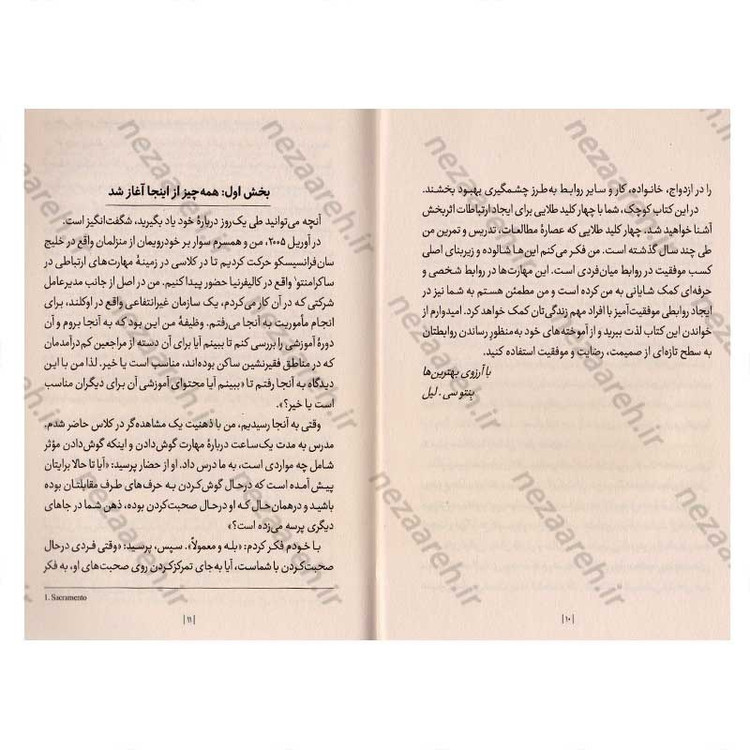 را در ازدواج، خانواده، کار و سایر روابط به‌طرز چشمگیری بهبود بخشند.
در این کتاب کوچک، شما با چهار کلید طلایی برای ایجاد ارتباطات اثربخش
آشنا خواهید شد. چهار کلید طلایی که عصارهٔ مطالعات، تدریس و تمرین من
طی چند سال گذشته است. من فکر می‌کنم این‌ها شالوده و زیربنای اصلی
کسب موفقیت در روابط میان‌فردی است. این مهارت‌ها در روابط شخصی و
حرفه‌ای کمک شایانی به من کرده است و من مطمئن هستم به شما نیز در
ایجاد روابطی موفقیت‌آمیز با افراد مهم زندگی‌تان کمک خواهد کرد. امیدوارم از
خواندن این کتاب لذت ببرید و از آموخته‌های خود به‌منظور رساندن روابطتان
به سطح تازه‌ای از صمیمت، رضایت و موفقیت استفاده کنید.
با آرزوی بهترین‌ها
بنتو سی. لیل
|۱۰|
بخش اول: همه چیز از اینجا آغاز شد
آنچه می‌توانید طی یک‌روز دربارهٔ خود یاد بگیرید، شگفت‌انگیز است.
در آوریل ۲۰۰۵، من و همسرم سوار بر خودرویمان از منزلمان واقع در خلیج
سان‌فرانسیسکو حرکت کردیم تا در کلاسی در زمینهٔ مهارت‌های ارتباطی در
ساکرامنتو۱ واقع در کالیفرنیا حضور پیدا کنیم. من در اصل از جانب مدیرعامل
شرکتی که در آن کار می‌کردم، یک سازمان غیرانتفاعی واقع در اوکلند، برای
انجام مأموریت به آنجا می‌رفتم. وظیفهٔ من این بود که به آنجا بروم و آن
دورهٔ آموزشی را بررسی کنم تا ببینم آیا برای آن دسته از مراجعین کم‌درآمدمان
که در مناطق فقیرنشین ساکن بوده‌اند، مناسب است یا خیر. لذا من با این
دیدگاه به آنجا رفتم تا «ببینم آیا محتوای آموزشی آن برای دیگران مناسب
است یا خیر؟».
وقتی به آنجا رسیدیم، من با ذهنیت یک مشاهده‌گر در کلاس حاضر شدم.
مدرس به مدت یک‌ساعت دربارهٔ مهارت گوش‌دادن و اینکه گوش‌دادن مؤثر
شامل چه مواردی است، به ما درس داد. او از حضار پرسید: «آیا تا حالا برایتان
پیش آمده است که درحال گوش‌کردن به حرف‌های طرف مقابلتان بوده
باشید و درهمان حال که او درحال صحبت‌کردن بوده، ذهن شما در جاهای
دیگری پرسه می‌زده است؟»
با خودم فکر کردم: «بله و معمولاً». سپس، پرسید: «وقتی فردی درحال
صحبت‌کردن با شماست، آیا به‌جای تمرکزکردن روی صحبت‌های او، به فکر
1. Sacramento
|۱۱|
nezaareh.ir